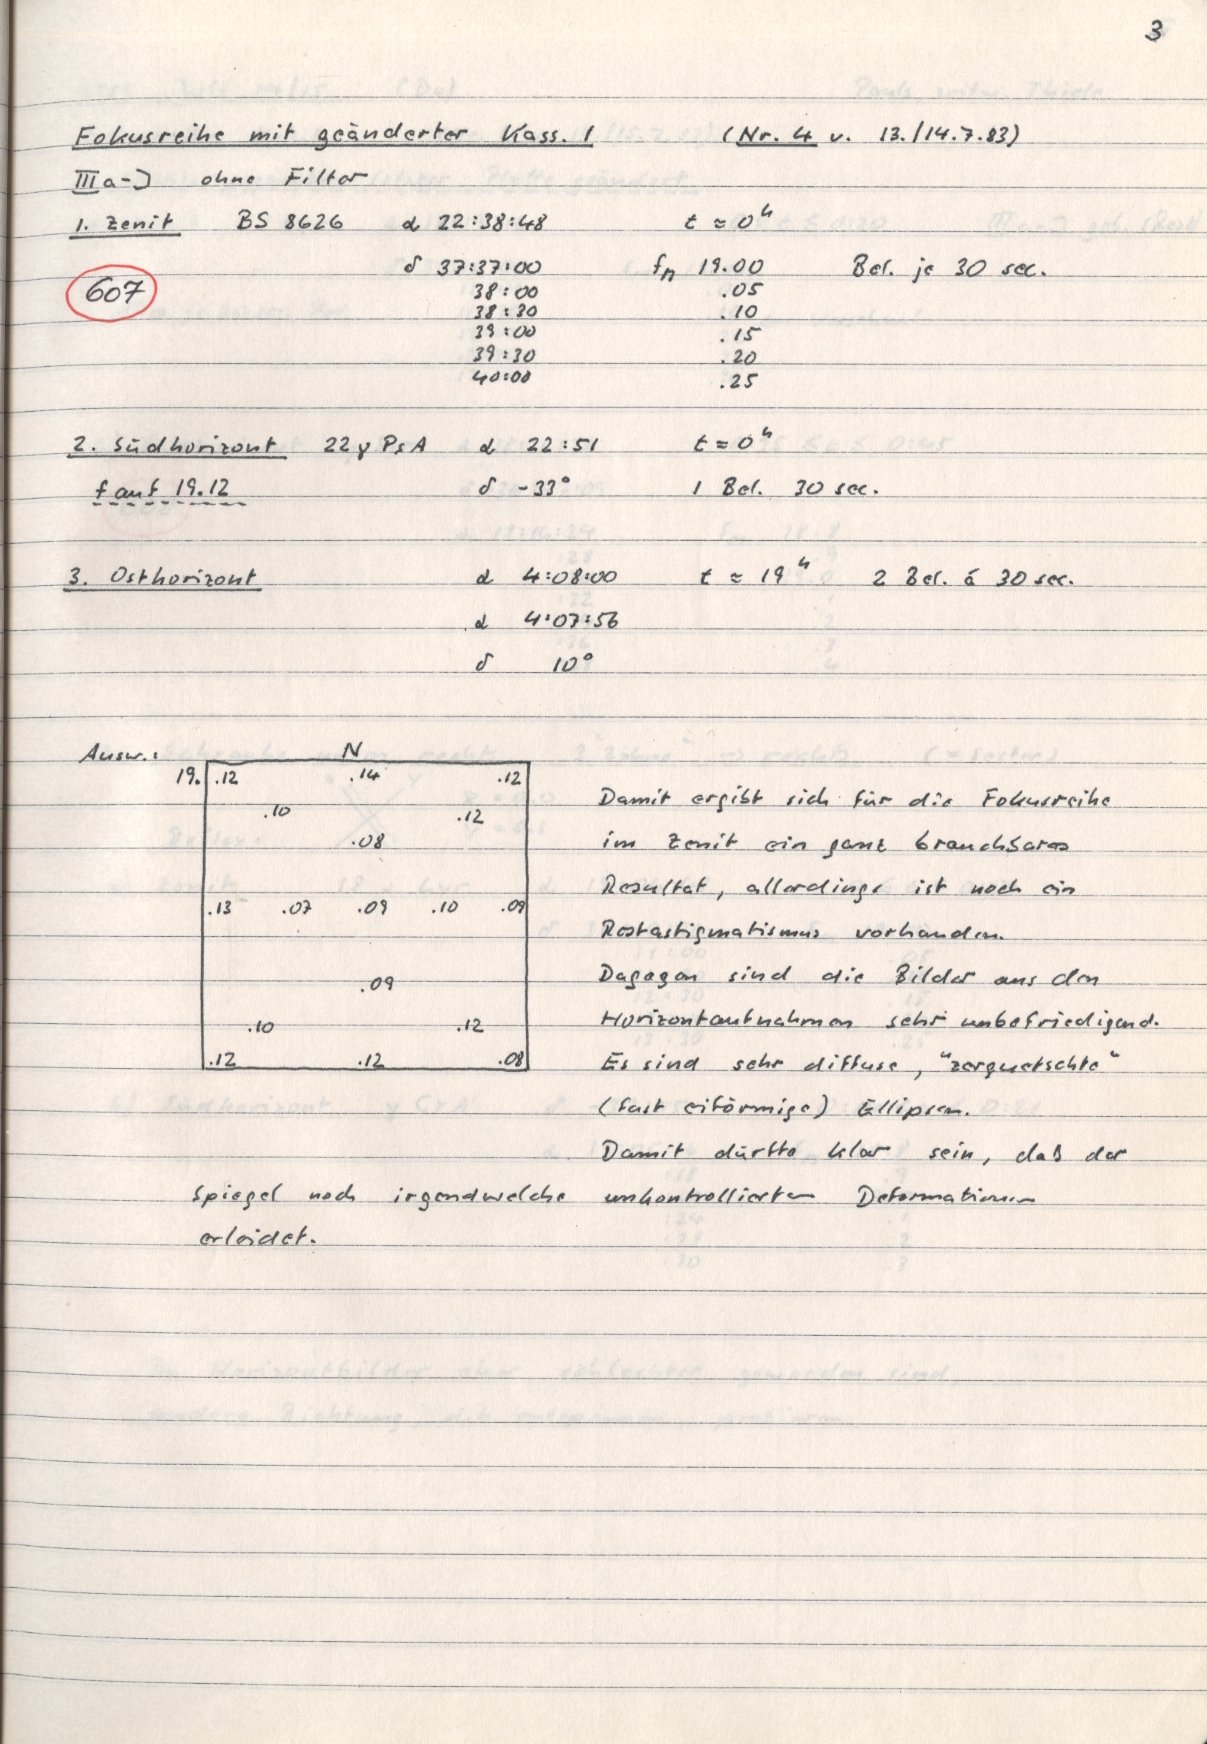 3
Fokusreihe mit geänderter Kass. 1 (Nr. 4 v. 13./14.7.83)
IIIa-J ohne Filter
1. Zenit BS 8626 α 22:38:48 t ≈ 0ʰ
607 δ 37:37:00 fₙ 19.00 Bel. je 30 sec.
38:00 .05
38:30 .10
39:00 .15
39:30 .20
40:00 .25
2. Südhorizont 22 γ PsA α 22:51 t ≈ 0ʰ
f auf 19.12 δ -33° 1 Bel. 30 sec.
3. Osthorizont α 4:08:00 t ≈ 19ʰ 2 Bel. á 30 sec.
α 4:07:56
δ 10°
Ausw.: N
19. .12 .14 .12
.10 .12
.08
.13 .07 .09 .10 .09
.09
.10 .12
.12 .12 .08
Damit ergibt sich für die Fokusreihe
im Zenit ein ganz brauchbares
Resultat, allerdings ist noch ein
Restastigmatismus vorhanden.
Dagegen sind die Bilder aus den
Horizontaufnahmen sehr unbefriedigend.
Es sind sehr diffuse, "zerquetschte"
(fast eiförmige) Ellipsen.
Damit dürfte klar sein, daß der
Spiegel noch irgendwelche unkontrollierten Deformationen
erleidet.